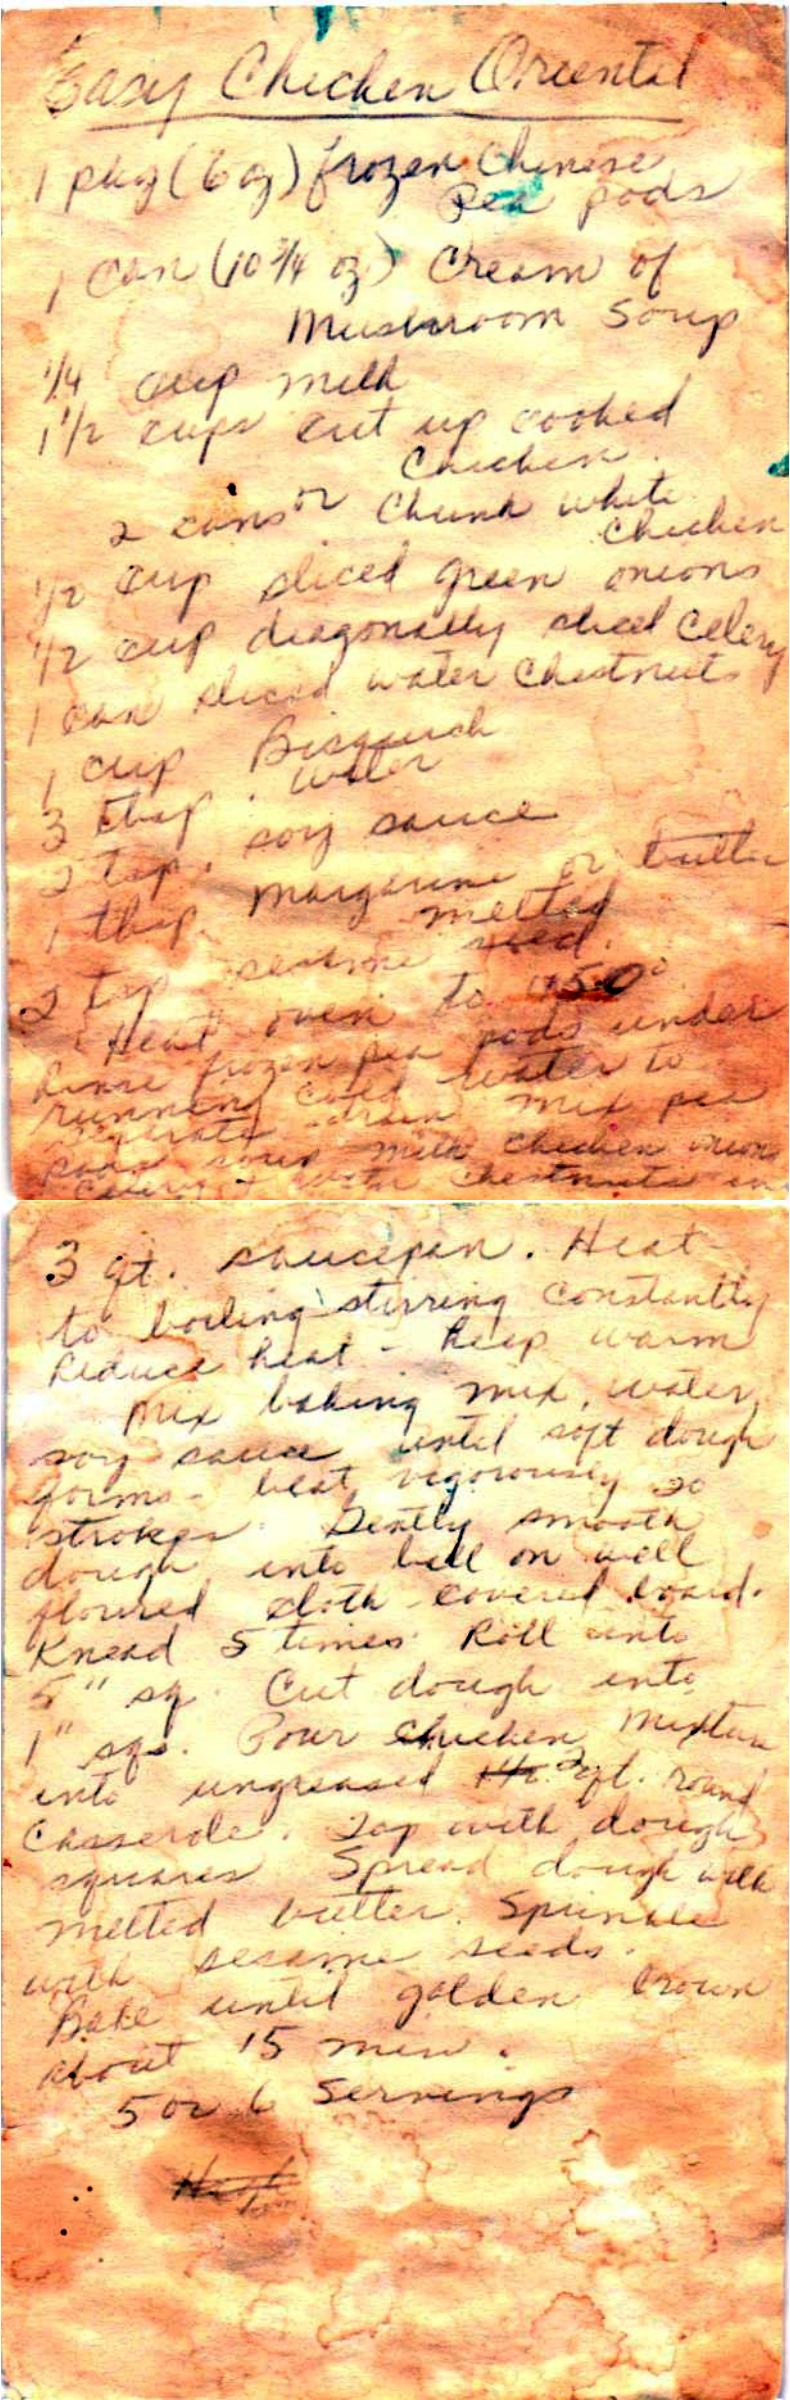 Easy Chicken Oriental
1 pkg (6 oz) frozen Chinese
Pea pods
1 can (10 3/4 oz) Cream of
Mushroom Soup
1/4 cup milk
1 1/2 cups cut up cooked
Chicken.
or
2 cans Chunk white
Chicken
1/2 cup sliced green onions
1/2 cup diagonally sliced Celery
1 can sliced water Chestnuts
1 cup Bisquick
3 tbsp. water
2 tsp. soy sauce
1 tbsp. Margarine or butter
melted
2 tsp sesame seed.
Heat oven to 450°
Rinse frozen pea pods under
running cold water to
seperate drain Mix pea
pods soup milk chicken onions
Celery & water chestnuts in
3 qt. saucepan. Heat
to boiling stirring constantly
Reduce heat - keep warm
Mix baking mix, water,
soy sauce until soft dough
forms - beat vigorously 20
strokes. Gently smooth
dough into ball on well
floured cloth-covered board.
Knead 5 times Roll into
5" sq. Cut dough into
1" sqs. Pour Chicken Mixture
into ungreased 2 qt. round
Casserole. Top with dough
squares Spread dough with
Melted butter. Sprinkle
with sesame seeds.
Bake until golden brown
about 15 min.
5 or 6 Servings